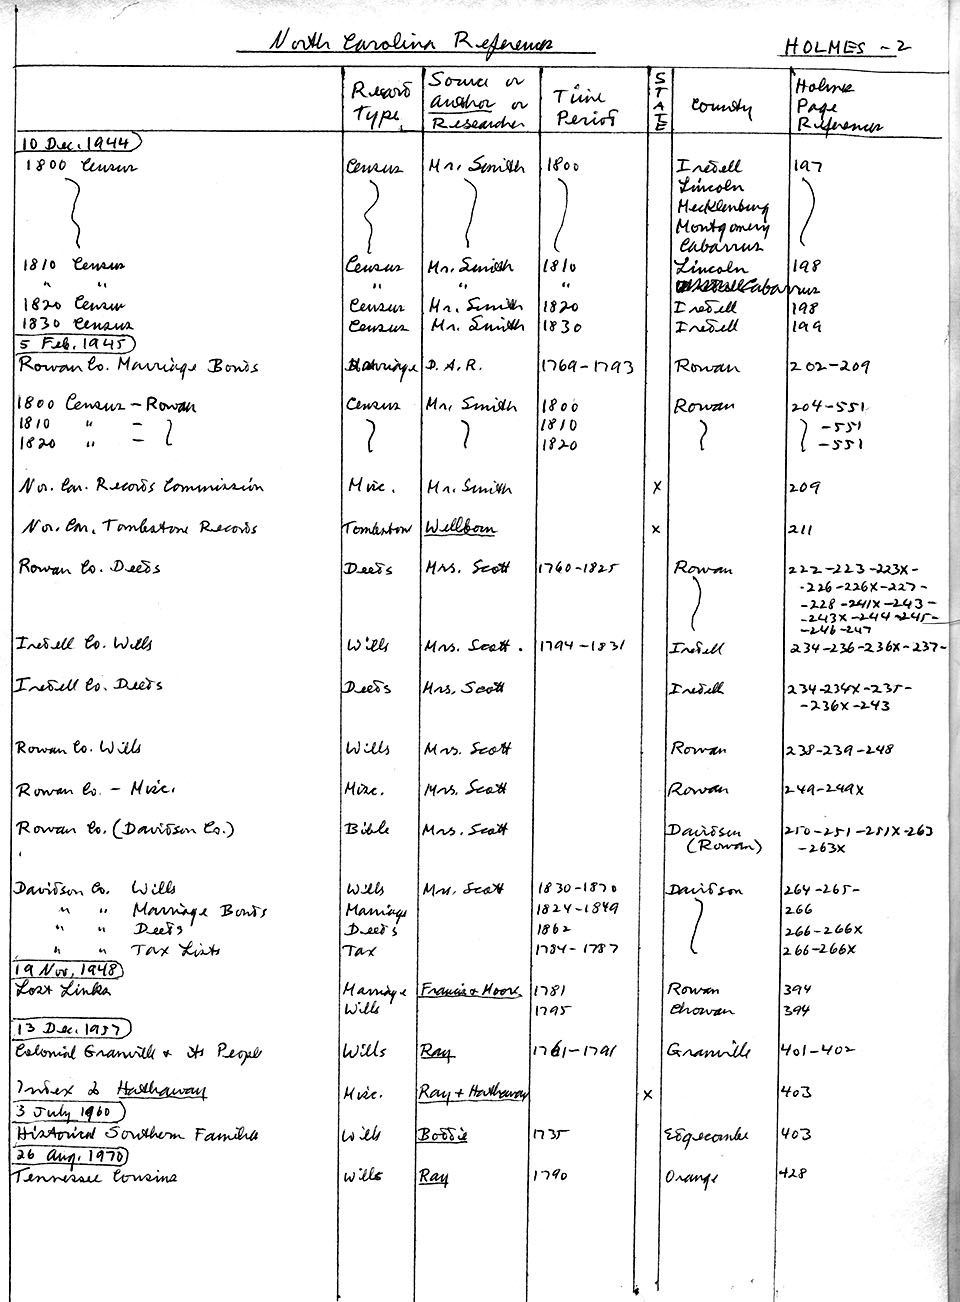 North Carolina References HOLMES - 2
Record Type Source or Author or Researcher Time Period STATE County Holmes Page References
10 Dec. 1944
1800 Census Census Mr. Smith 1800 Iredell 197
Lincoln
Mecklenburg
Montgomery
Cabarrus
1810 Census Census Mr. Smith 1810 Lincoln 198
" " " " " Cabarrus
1820 Census Census Mr. Smith 1820 Iredell 198
1830 Census Census Mr. Smith 1830 Iredell 199
5 Feb. 1945
Rowan Co. Marriage Bonds Marriage D.A.R. 1769-1793 Rowan 202-209
1800 Census - Rowan Census Mr. Smith 1800 Rowan 204-551
1810 " - 1810 -551
1820 " - 1820 -551
Nor. Car. Records Commission Misc. Mr. Smith x 209
Nor. Car. Tombstone Records Tombston Wellborn x 211
Rowan Co. Deeds Deeds Mrs. Scott 1760-1825 Rowan 222-223-223X-
-226-226X-227-
-228-241X-243-
-243X-244-245-
-246-247
Iredell Co. Wills Wills Mrs. Scott. 1794-1831 Iredell 234-236-236X-237-
Iredell Co. Deeds Deeds Mrs. Scott Iredell 234-234X-235-
-236X-243
Rowan Co. Wills Wills Mrs. Scott Rowan 238-239-248
Rowan Co. - Misc. Misc. Mrs. Scott Rowan 249-249X
Rowan Co. (Davidson Co.) Bible Mrs. Scott Davidson 250-251-251X-263
(Rowan) -263X
Davidson Co. Wills Wills Mrs. Scott 1830-1870 Davidson 264-265-
" " Marriage Bonds Marriage 1824-1849 266
" " Deeds Deeds 1862 266-266X
" " Tax Lists Tax 1784-1787 266-266X
19 Nov. 1948
Lost Links Marriage Francis & Moore 1781 Rowan 394
Wills 1795 Chowan 394
13 Dec. 1957
Colonial Granville & its People Wills Ray 1761-1791 Granville 401-402
Index to Hathaway Misc. Ray + Hathaway x 403
3 July 1960
Historical Southern Families Wills Boddie 1735 Edgecombe 403
26 Aug. 1970
Tennessee Cousins Wills Ray 1790 Orange 428